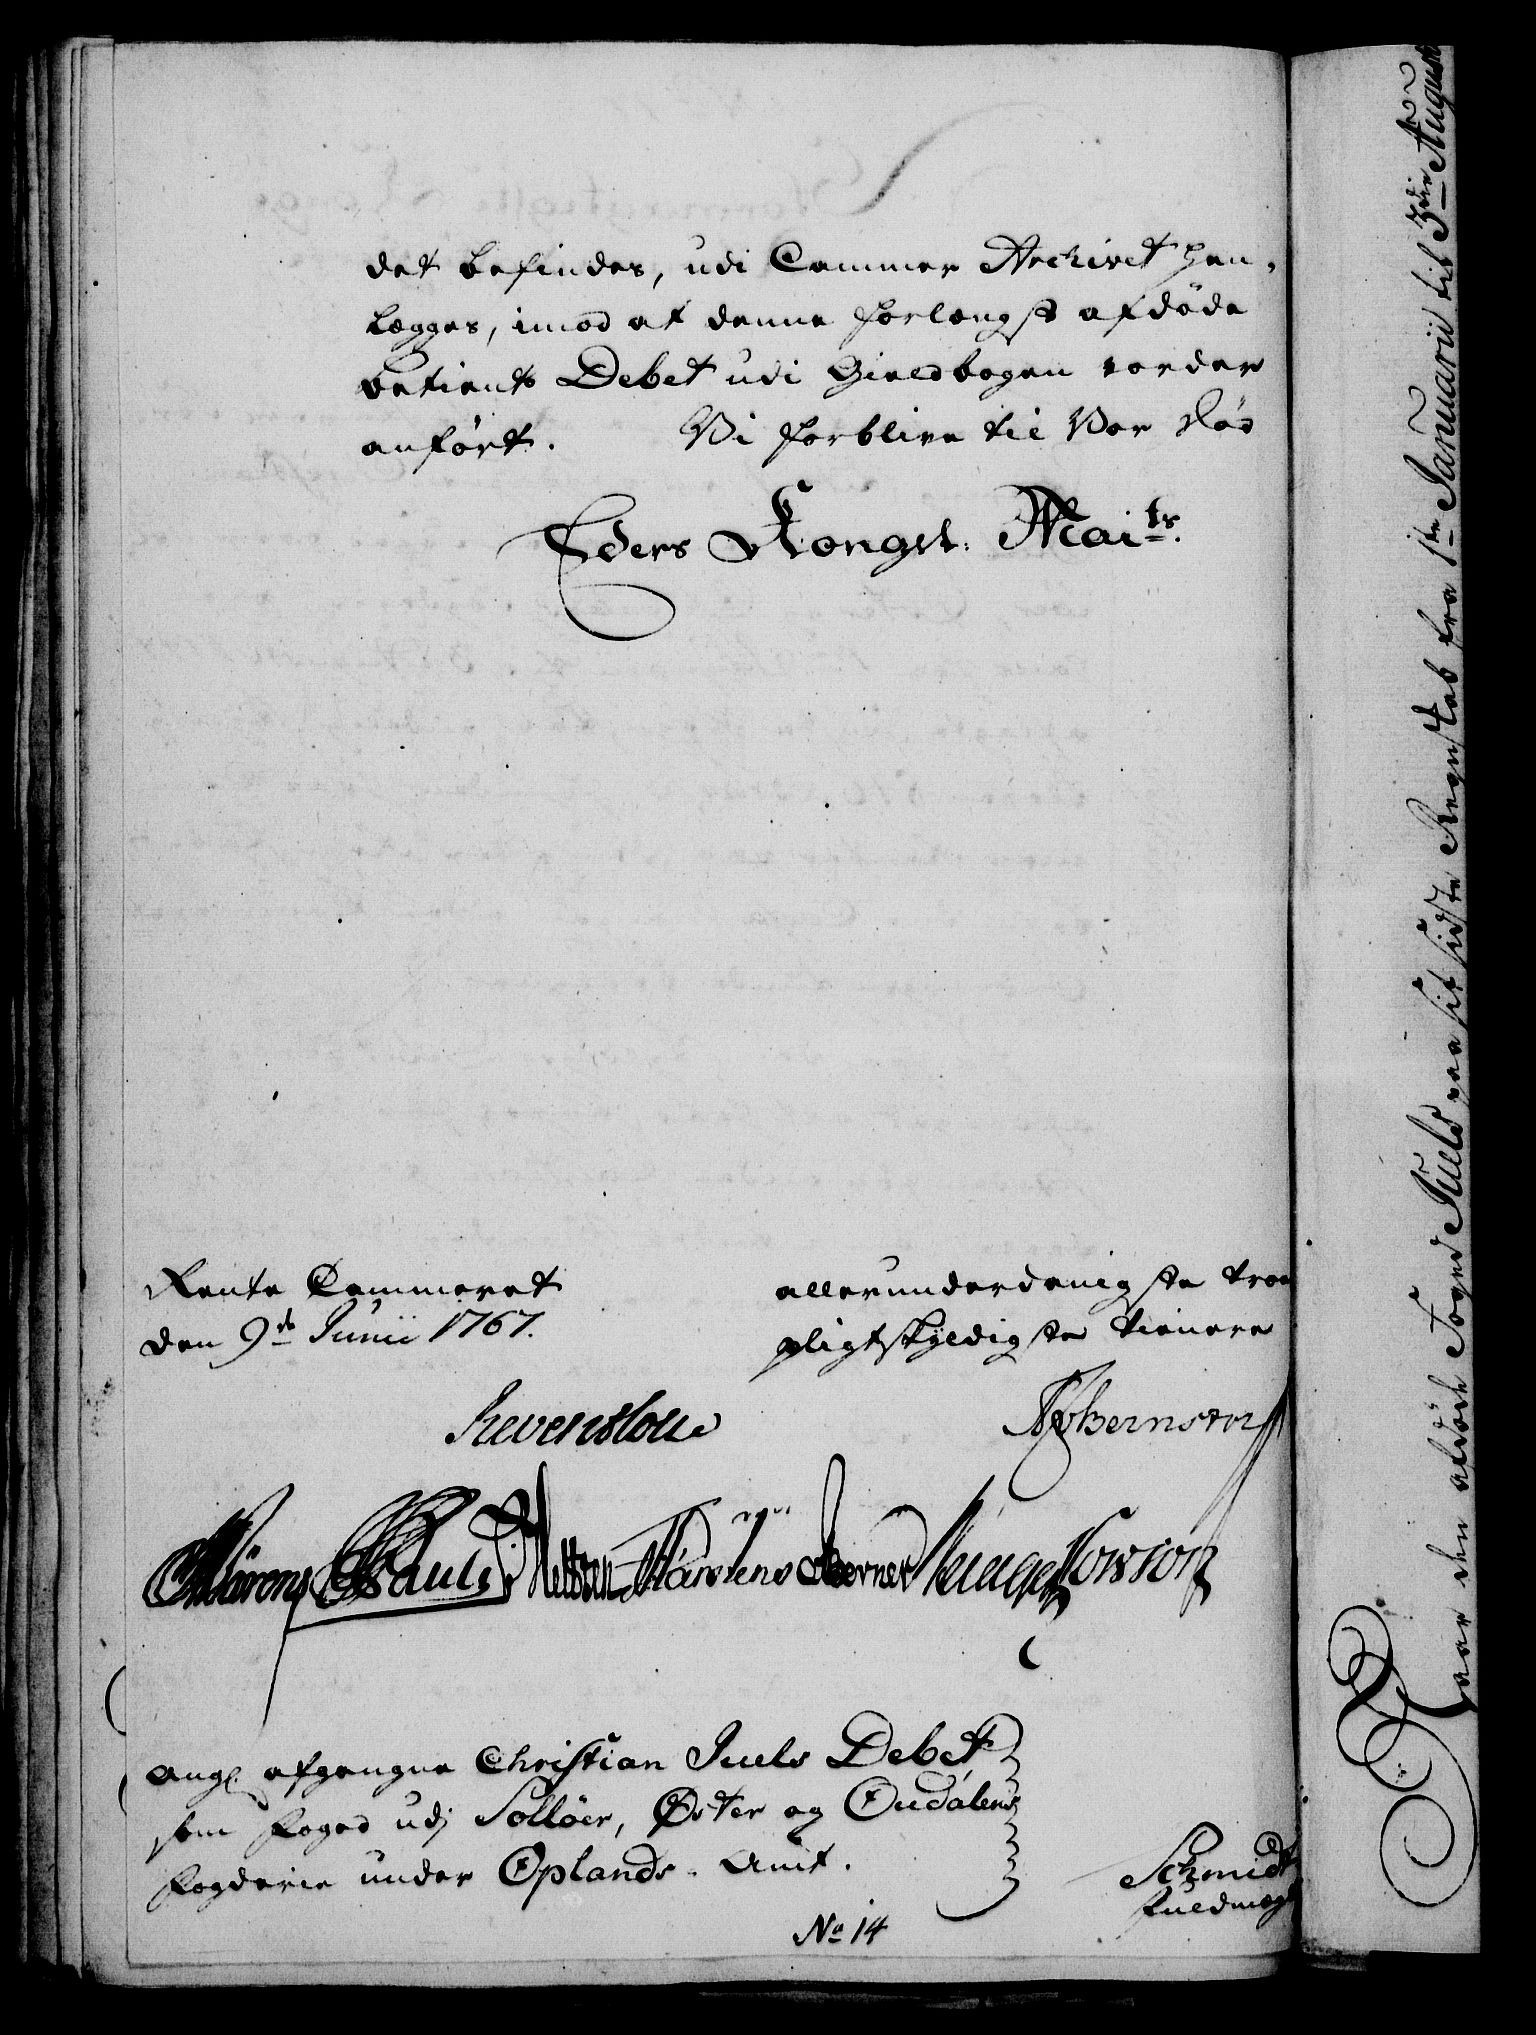 det befindes, udi Cammer Archivet hen,
legges, imod at denne forlengst afdöde
betients Debet udi Gieldbogen vorder
anfört. Vi forblive til Vor död
Eders Kongel: Mai<sup>ts</sup>.
Rente Cammeret
den 9<sup>de</sup> Junii 1767.
allerunderdanigste troe
pligtskyldigste tienere
Reventlow
AP Bernstorff
Pauli
Berner
ang: afgangne Christian Juels Debet
som foged udj Sollöer, Öster og Oudalens
fogderie under Oplands Amt.
Schmidt
fuldmegt
No 14
Paa den afdöde Foged Juels paa sit sidste Regnskab fra 1<sup>ste</sup> Januarii til 3<sup>die</sup> Augusti